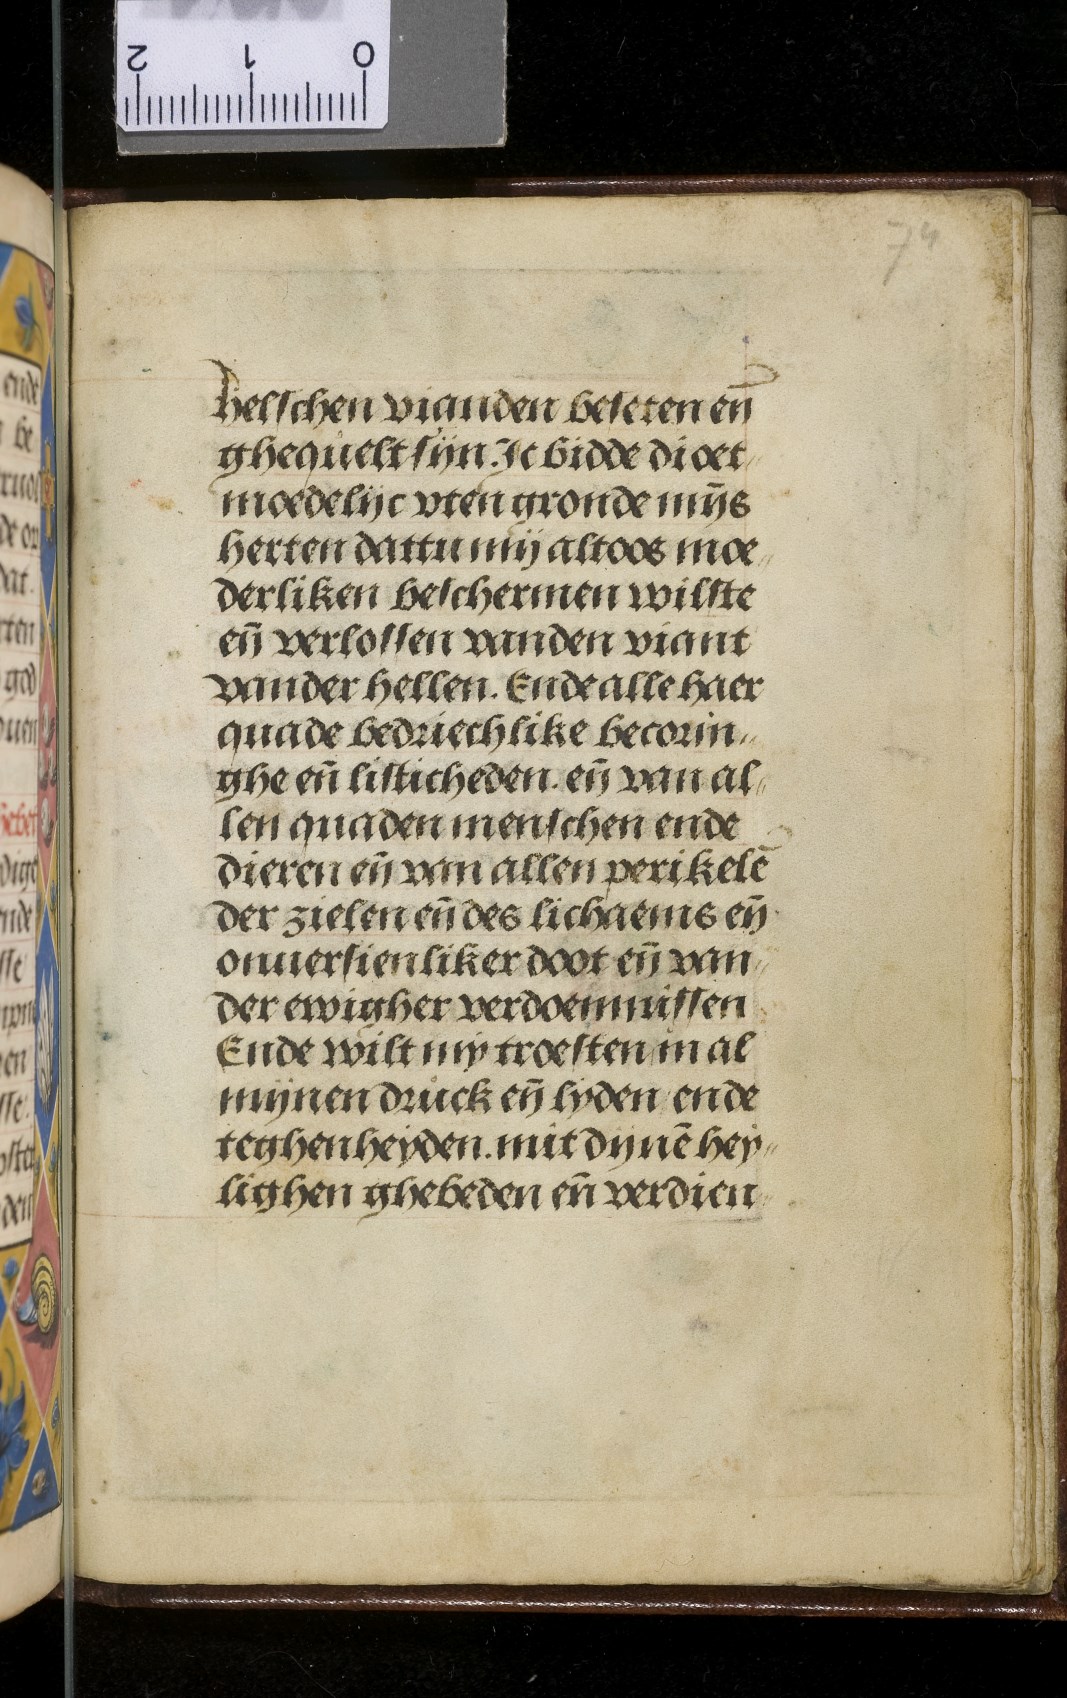 2 1 0
74
helschen vianden beseten en̄
ghequelt sijn. Ic bidde di oet
moedelijc vten gronde mijs̄
herten dattu mij altoos moe„
derliken beschermen wilste
en̄ verlossen vanden viant
vander hellen. Ende alle haer
quade bedriechlike becorin„
ghe en̄ listicheden. en̄ van al„
len quaden menschen ende
dieren en̄ van allen perikelē
der zielen en̄ des lichaems en̄
onuersienliker doot en̄ van„
der ewigher verdoemnissen
Ende wilt mij troesten in al
mijnen druck en̄ lyden ende
teghenheyden. mit dijnē hey„
lighen ghebeden en̄ verdien„